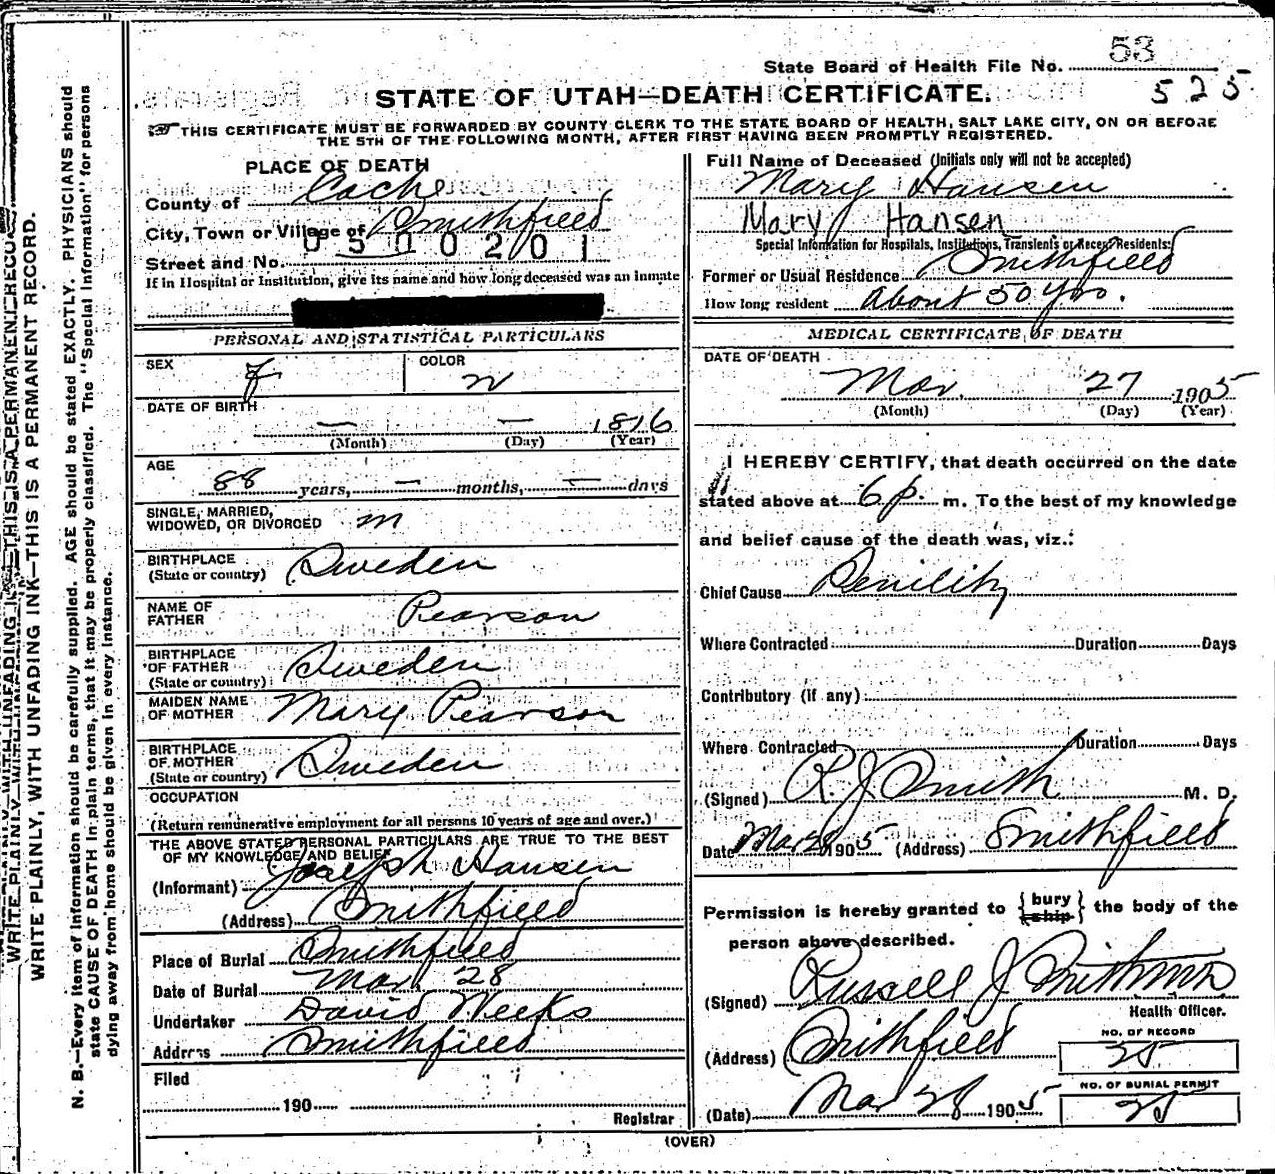 State Board of Health File No. 53
525
STATE OF UTAH—DEATH CERTIFICATE.
THIS CERTIFICATE MUST BE FORWARDED BY COUNTY CLERK TO THE STATE BOARD OF HEALTH, SALT LAKE CITY, ON OR BEFORE
THE 5TH OF THE FOLLOWING MONTH, AFTER FIRST HAVING BEEN PROMPTLY REGISTERED.
PLACE OF DEATH
County of Cache
City, Town or Village of Smithfield
0 5 0 0 2 0 1
Street and No.
If in Hospital or Institution, give its name and how long deceased was an inmate
Full Name of Deceased (Initials only will not be accepted)
Mary Hansen
Mary Hansen
Special Information for Hospitals, Institutions, Transients or Recent Residents:
Former or Usual Residence Smithfield
How long resident About 50 Yrs.
PERSONAL AND STATISTICAL PARTICULARS
SEX F COLOR W
DATE OF BIRTH
— — 1816
(Month) (Day) (Year)
AGE
88 years, — months, — days
SINGLE, MARRIED,
WIDOWED, OR DIVORCED m
BIRTHPLACE
(State or country) Sweden
NAME OF
FATHER Pearson
BIRTHPLACE
OF FATHER
(State or country) Sweden
MAIDEN NAME
OF MOTHER Mary Pearson
BIRTHPLACE
OF MOTHER
(State or country) Sweden
OCCUPATION
(Return remunerative employment for all persons 10 years of age and over.)
THE ABOVE STATED PERSONAL PARTICULARS ARE TRUE TO THE BEST
OF MY KNOWLEDGE AND BELIEF
(Informant) Joseph Hansen
(Address) Smithfield
Place of Burial Smithfield
Date of Burial Mar 28
Undertaker David Weeks
Address Smithfield
Filed
190
Registrar
MEDICAL CERTIFICATE OF DEATH
DATE OF DEATH
Mar. 27 1905
(Month) (Day) (Year)
I HEREBY CERTIFY, that death occurred on the date
stated above at 6 p. m. To the best of my knowledge
and belief cause of the death was, viz.:
Chief Cause Senility
Where Contracted Duration Days
Contributory (if any)
Where Contracted Duration Days
(Signed) R. J. Smith M. D.
Date Mar 28 1905 (Address) Smithfield
Permission is hereby granted to {bury ship} the body of the
person above described.
(Signed) Russell J Smith
Health Officer.
(Address) Smithfield
NO. OF RECORD
25
(Date) Mar 28 1905
NO. OF BURIAL PERMIT
25
(OVER)
WRITE PLAINLY, WITH UNFADING INK—THIS IS A PERMANENT RECORD.
WRITE PLAINLY, WITH UNFADING INK—THIS IS A PERMANENT RECORD.
N. B.—Every item of information should be carefully supplied. AGE should be stated EXACTLY. PHYSICIANS should
state CAUSE OF DEATH in plain terms, that it may be properly classified. The "Special Information" for persons
dying away from home should be given in every instance.